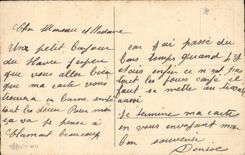 Cher Monsieur et Madame
Un petit bonjour
du Havre j'espère
que vous allez bien
que ma carte vous
trouvera en bonne santé
tout les deux. Pour moi
ça va je pense à
beaucoup
car j'ai passé du
bon temps quand j'y
enfin ce n'est pas
tout les jours café il
faut se mettre au travail
aussi
Je termine ma carte
en vous envoyant mon
bon souvenir
Denise